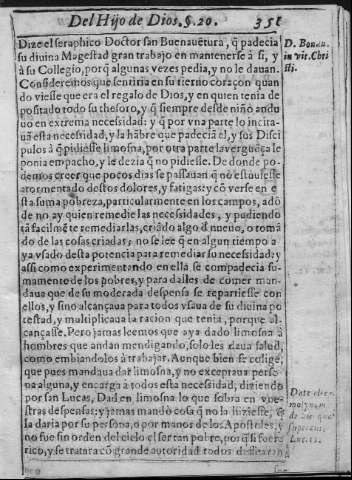 Del Hijo de Dios. §. 20. 351
Dize el seraphico Doctor san Buenauẽtura, q̃ padecia
su diuina Magestad gran trabajo en mantenerse à si, y
à su Collegio, porq̃ algunas vezes pedia, y no le dauan.
Consideremos que sentiria en su tierno coraçon quan
do viesse que era el regalo de Dios, y en quien tenia de
positado todo su thesoro, y q̃ siempre desde niño andu
uo en extrema necessidad: y q̃ por vna parte lo incita-
uã esta necessidad, y la hãbre que padecia el, y sus Disci
pulos à q̃ pidiesse limosna, por otra parte la verguẽça le
ponia empacho, y le dezia q̃ no pidiesse. De donde po-
demos creer que pocos dias se passauan q̃ no estuuiesse
atormentado destos dolores, y fatigas: y cõ verse en e
sta suma pobreza, particularmente en los campos, adõ
de no ay quien remedie las necessidades, y pudiendo
tã facilmẽte remediarlas, criãdo algo d nueuo, o tomã
do de las cosas criadas; no se lee q̃ en algun tiempo a
ya vsado desta potencia para remediar su necessidad: y
assi como experimentando en ella se compadecia su-
mamente de los pobres, y para dalles de comer man-
daua que de su moderada despensa se repartiesse con
ellos, y sino alcançaua para todos vsaua de su diuina po
testad, y multiplicaua la racion que tenia, porque al-
cançasse. Pero jamas leemos que aya dado limosna à
hombres que andan mendigando, solo les daua salud,
como embiandolos à trabajar. Aunque bien se colige,
que pues mandaua dar limosna, y no exceptaua perso
na alguna, y encarga à todos esta necessidad, diziendo
por san Lucas, Dad en limosna lo que sobra en vue-
stras despensas: y jamas mandò cosa q̃ no la hiziesse, q̃
la daria por su persona, o por manos de los Apostoles; y
no fue sin orden del cielo el ser tan pobre, porq̃ si fuera
rico, y se tratara cõ grande autoridad todos dessearan
D. Bonau.
in vit. Chri
sti.
Date elee
mosynam
Luc. 11.